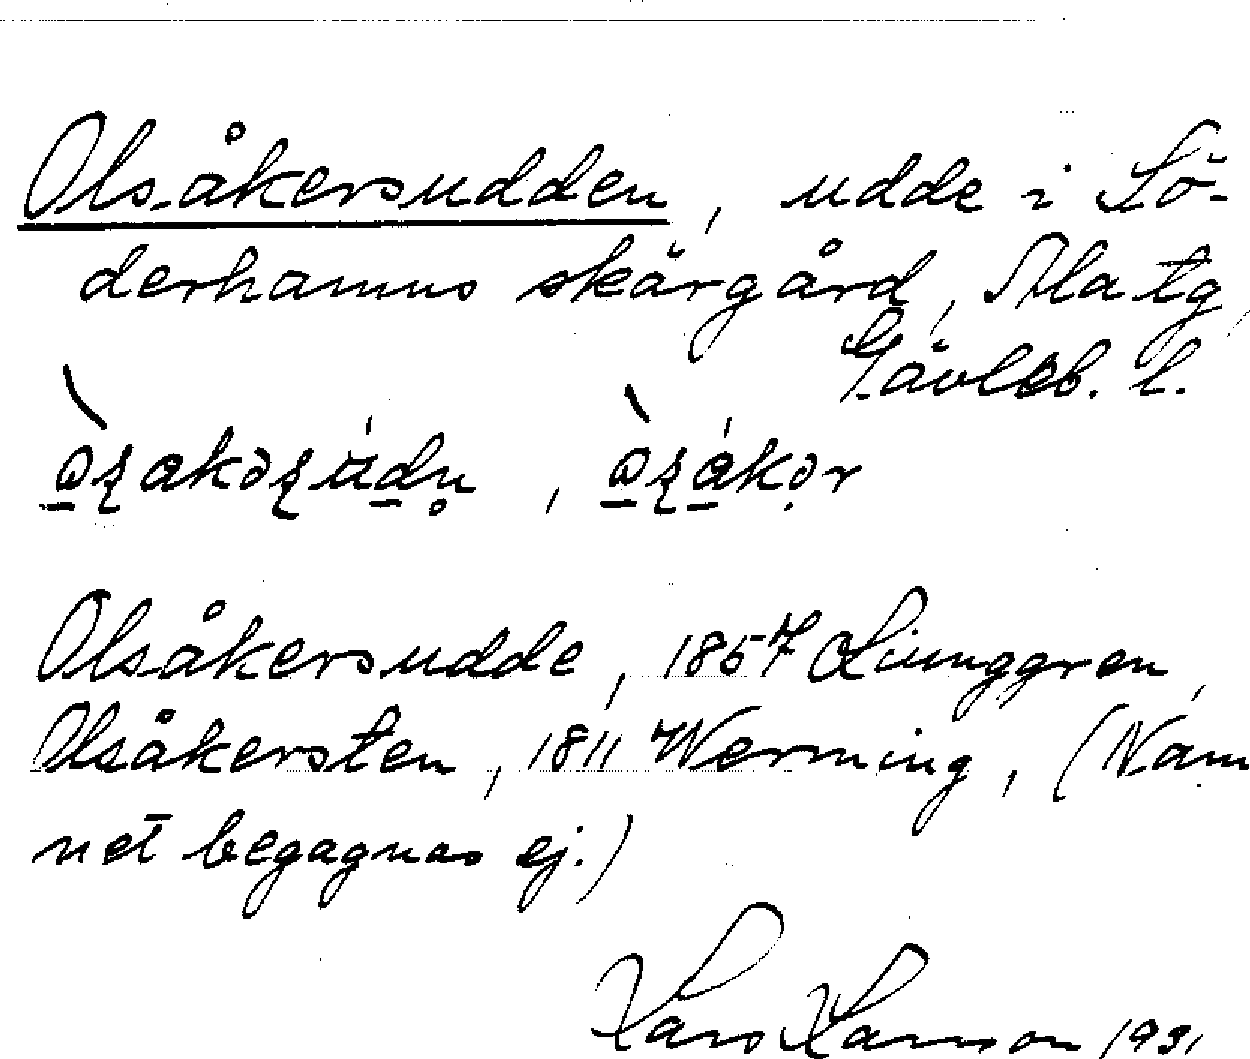 Olsåkersudden, udde i Sö-
derhamns skärgård, Ala tg,
Gävleb. l.
Olsåkersudde, 1857 Ljunggren,
Olsåkersten, 1811 Werming, (Nam
net begagnas ej.)
Lars Larsson 1931